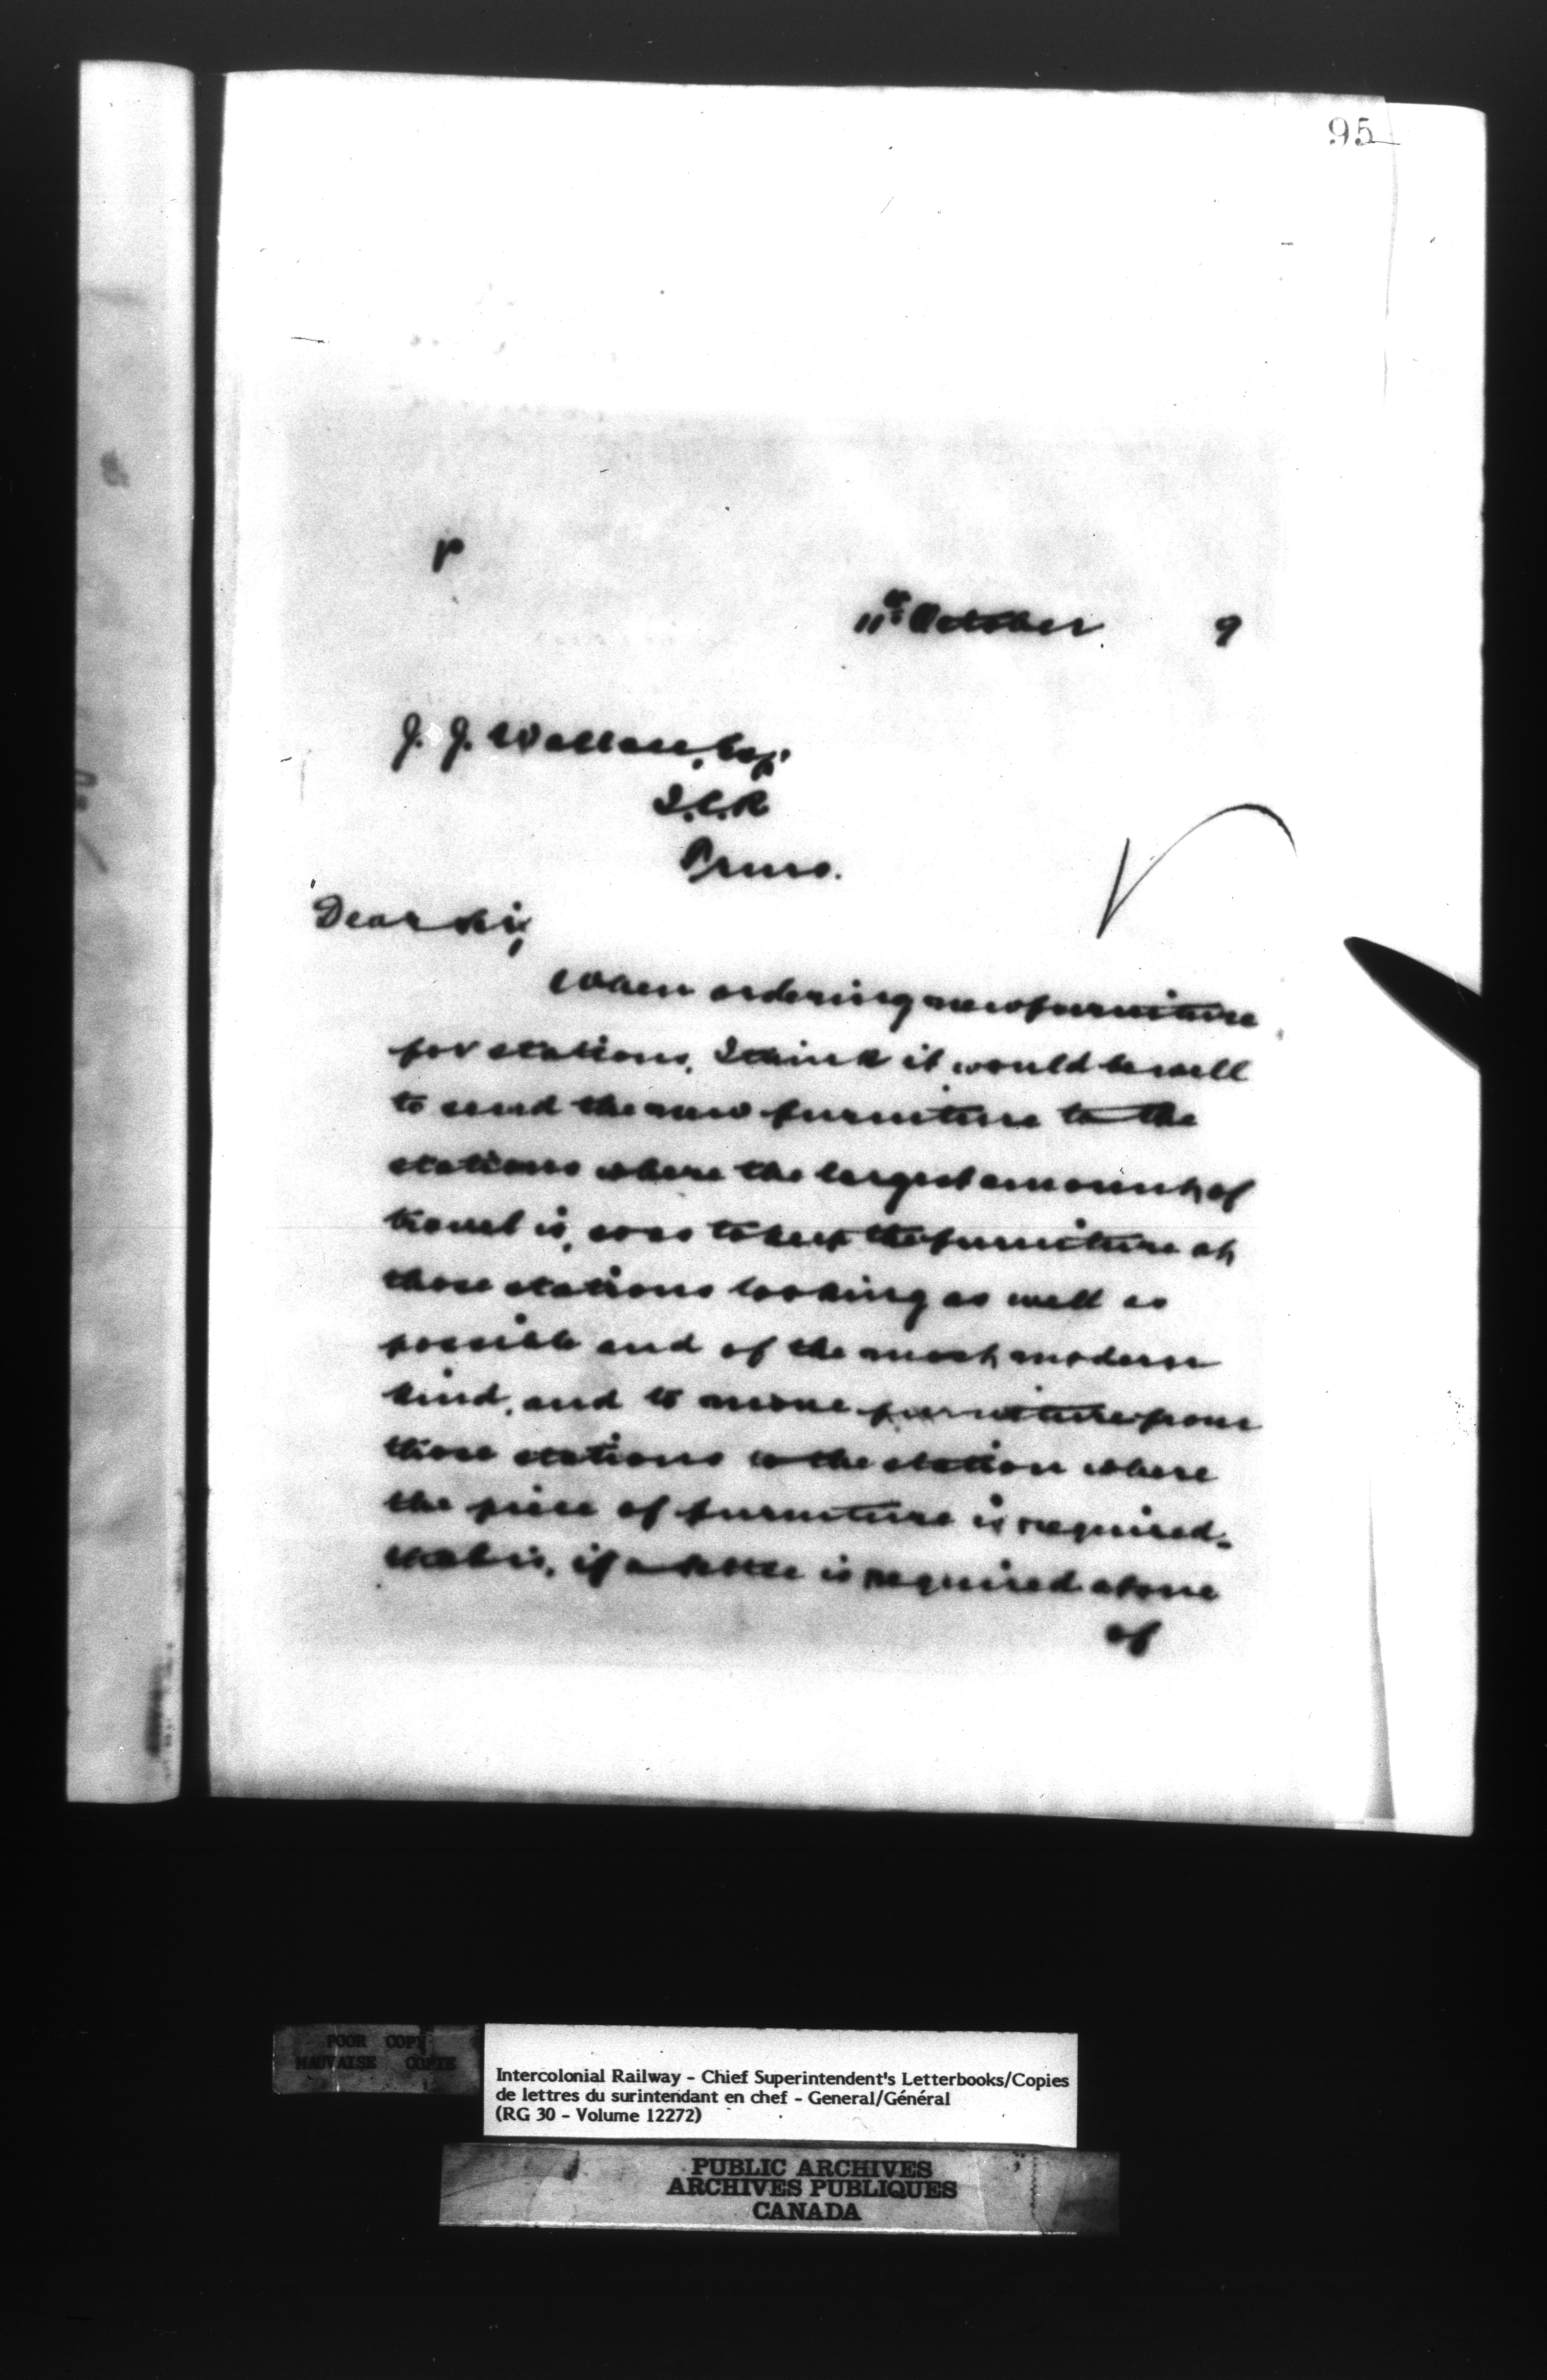 95
P
11th October 9
J. J. Wallace, Esq.
I.C.R
Truro.
Dear Sir,
When ordering new furniture
for stations, I think it would be well
to send the new furniture to the
stations where the largest amount of
travel is, so as to keep the furniture at
those stations looking as well as
possible and of the most modern
kind, and to move furniture from
those stations to the station where
the piece of furniture is required -
that is, if a settee is required at one
of
POOR COPY
MAUVAISE COPIE
Intercolonial Railway - Chief Superintendent's Letterbooks/Copies
de lettres du surintendant en chef - General/Général
(RG 30 - Volume 12272)
PUBLIC ARCHIVES
ARCHIVES PUBLIQUES
CANADA